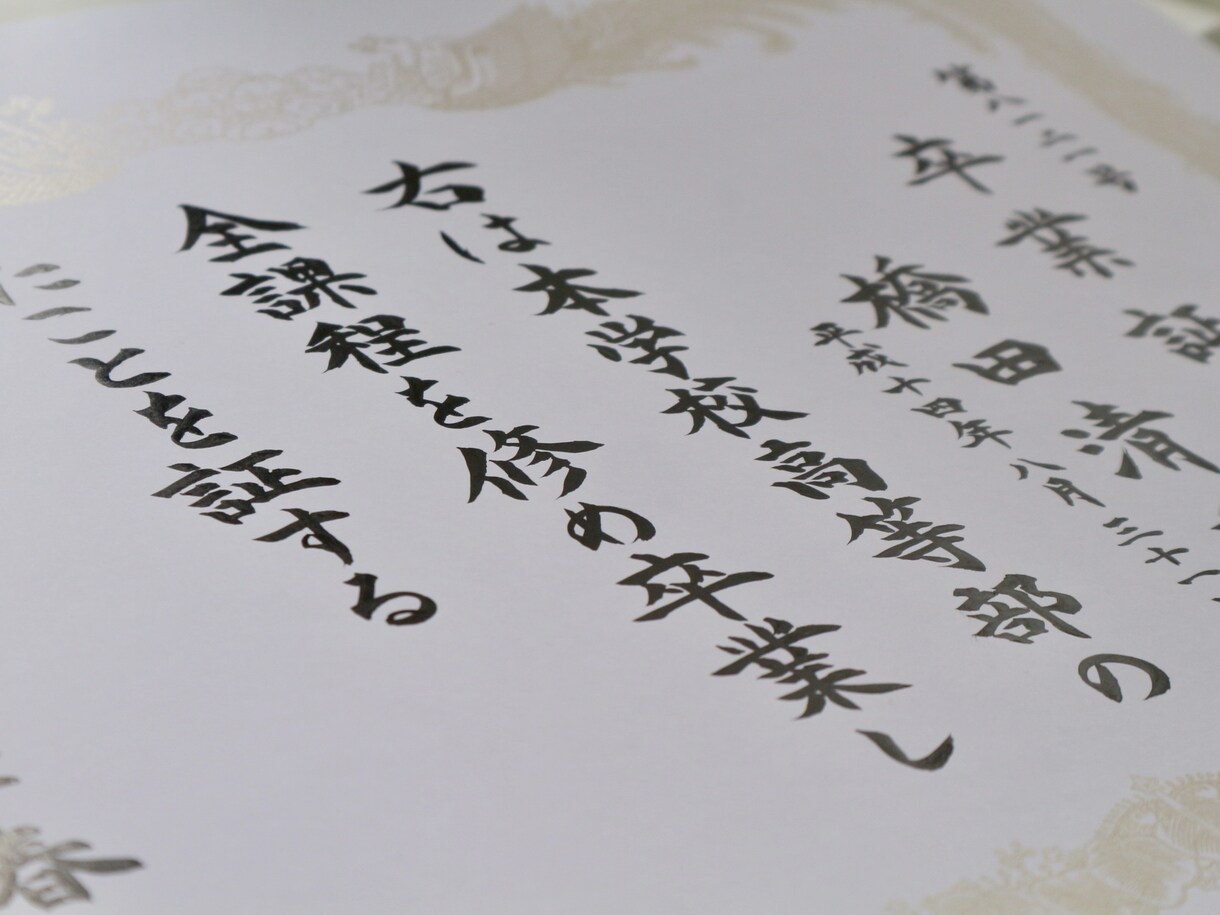 第八一二一号
卒業証
橋田清
平成十四年八月三十
右は本学校高等部の
全課程を修め卒業し
たことを証する
春